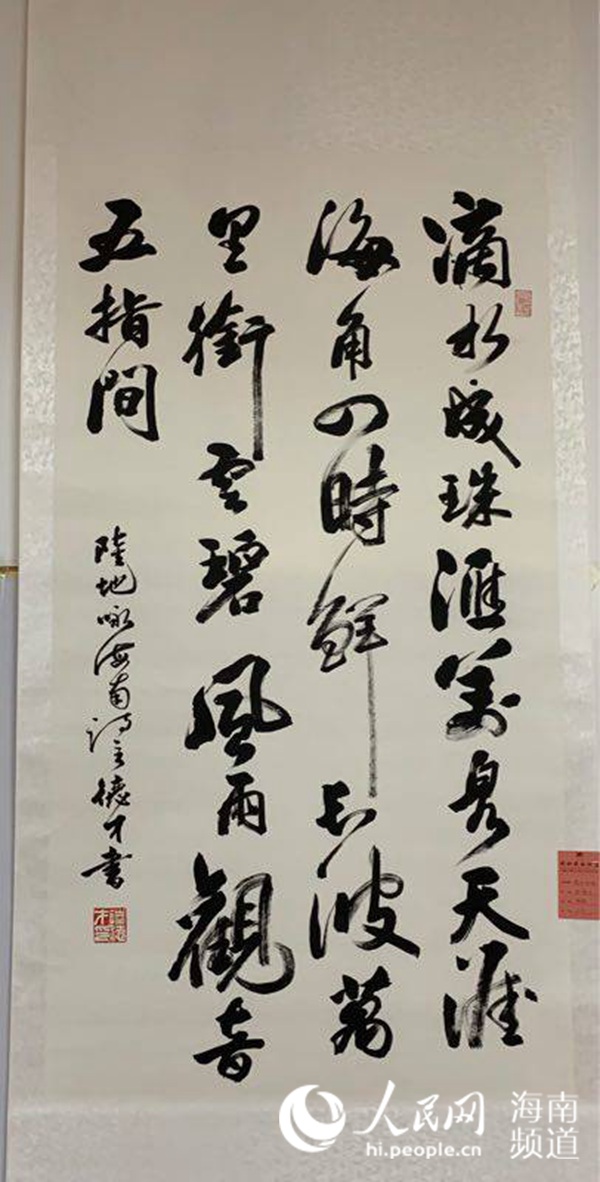 滴水成珠匯萬泉天涯
海角四時鮮長波萬
里銜雲碧風雨觀音
五指間
陸地咏海南詩 德才書
人民网 海南频道
hi.people.cn